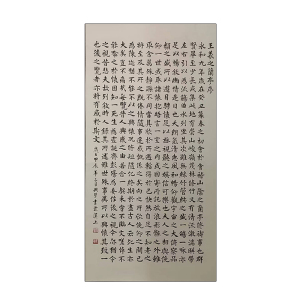 王羲之蘭亭序
永和九年歲在癸丑暮春之初會於會稽山陰之蘭亭脩禊事也群
賢畢至少長咸集此地有崇山峻嶺茂林脩竹又有清流激湍映帶
左右引以為流觴曲水列坐其次雖無絲竹管弦之盛一觴一詠亦
足以暢敘幽情是日也天朗氣清惠風和暢仰觀宇宙之大俯察品
類之盛所以遊目騁懷足以極視聽之娛信可樂也夫人之相與俯
仰一世或取諸懷抱悟言一室之內或因寄所託放浪形骸之外雖
趣舍萬殊靜躁不同當其欣於所遇暫得於己快然自足不知老之
將至及其所之既惓情隨事遷感慨係之矣向之所欣俛仰之間已
為陳迹猶不能不以之興懷況脩短隨化終期於盡古人云死生亦
大矣豈不痛哉每覽昔人興感之由若合一契未嘗不臨文嗟悼不
能喻之於懷固知一死生為虛誕齊彭殤為妄作後之視今亦由今
之視昔悲夫故列敘時人錄其所述雖世殊事異所以興懷其致一
也後之覽者亦將有感於斯文